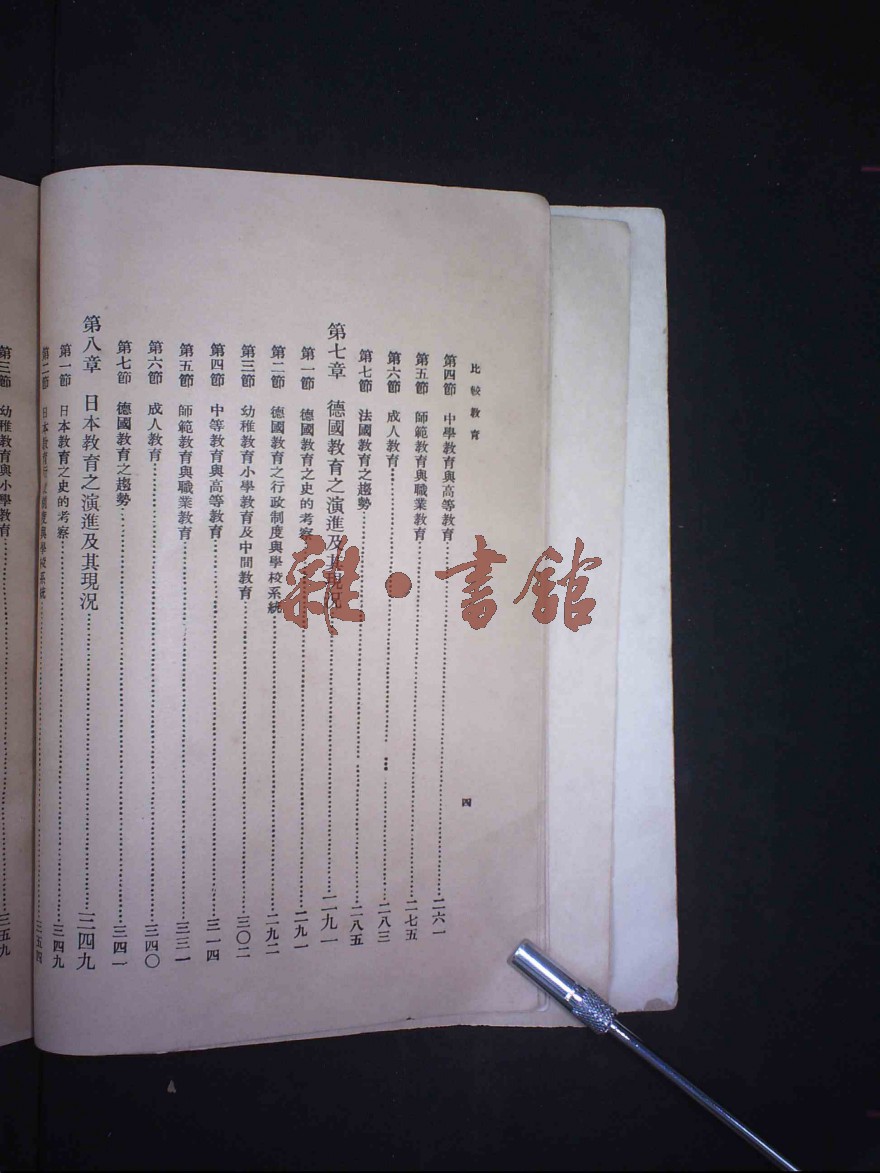 比較教育
四
第四節 中學教育與高等教育……二六一
第五節 師範教育與職業教育……二七五
第六節 成人教育……二八三
第七節 法國教育之趨勢……二八五
第七章 德國教育之演進及其現況……二九一
第一節 德國教育之史的考察……二九一
第二節 德國教育之行政制度與學校系統……二九二
第三節 幼稚教育小學教育及中間教育……三〇二
第四節 中等教育與高等教育……三一四
第五節 師範教育與職業教育……三三一
第六節 成人教育……三四〇
第七節 德國教育之趨勢……三四一
第八章 日本教育之演進及其現況……三四九
第一節 日本教育之史的考察……三四九
第二節 日本教育行政制度與學校系統……三五四
第三節 幼稚教育與小學教育……三五九
雜·書館